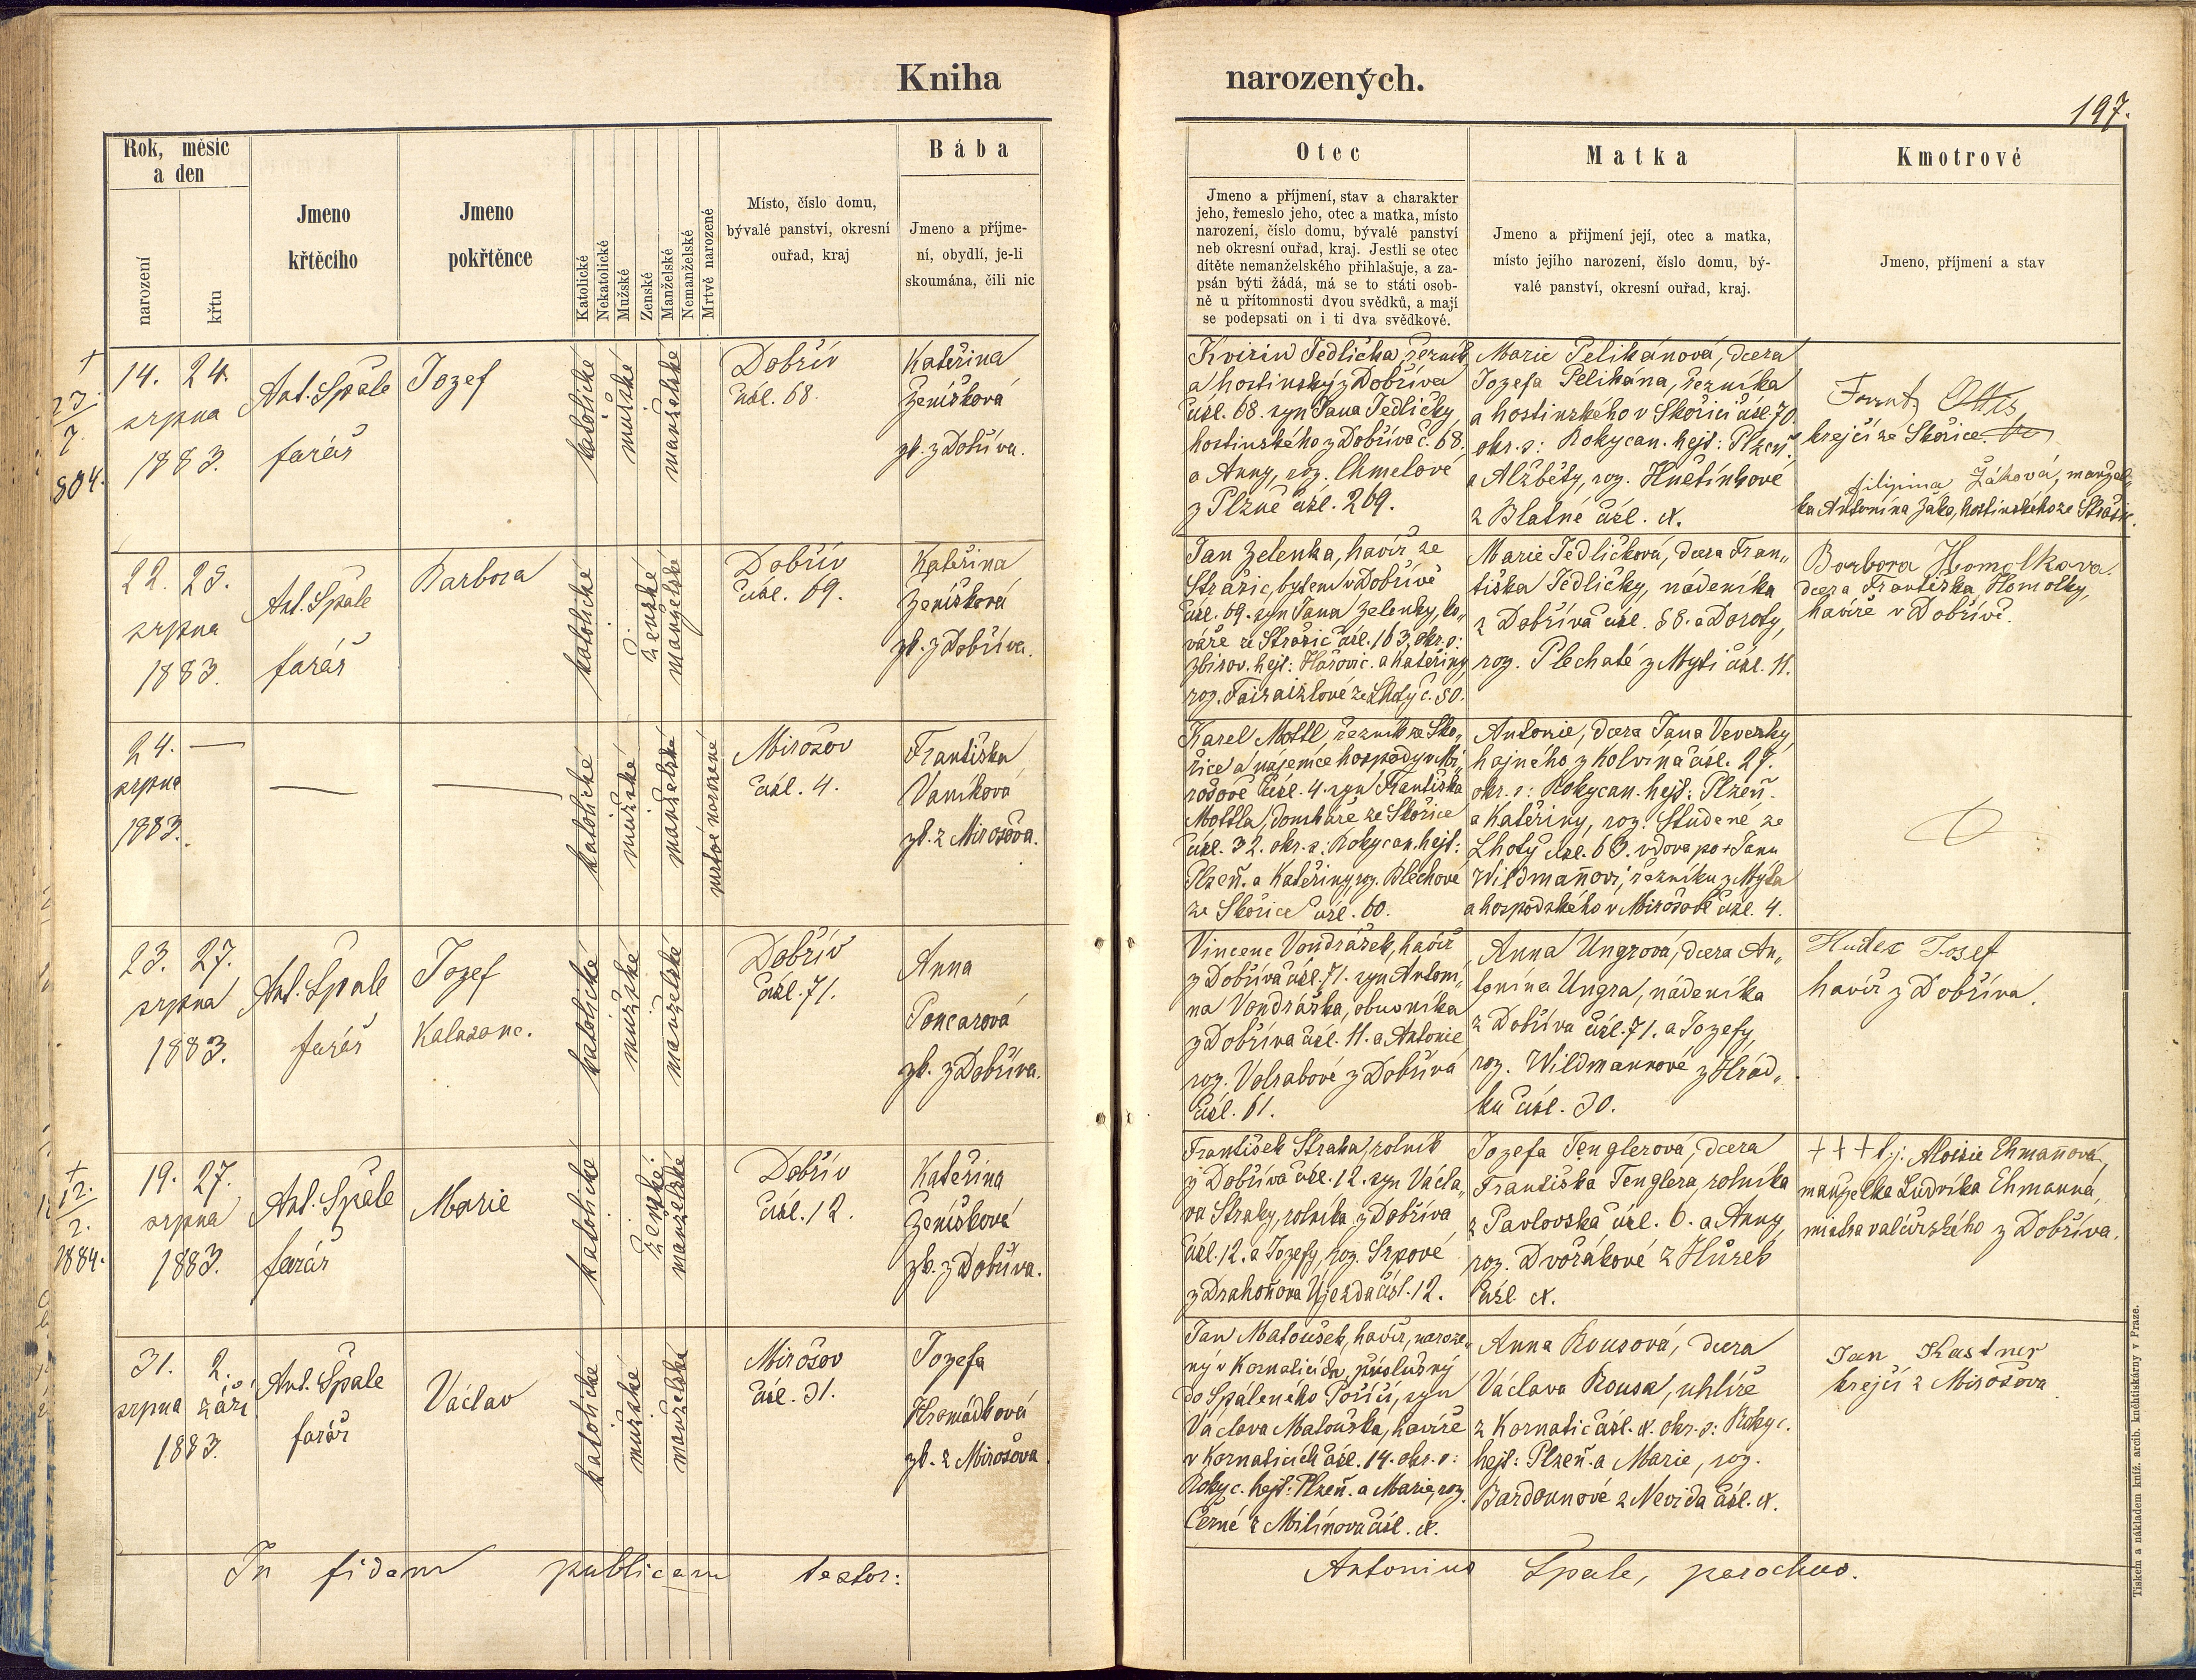 Kniha narozených.
197.
Rok, měsíc
a den
narození
křtu
Jmeno
křtěcího
Jmeno
pokřtěnce
Katolické
Nekatolické
Mužské
Ženské
Manželské
Nemanželské
Mrtvě narozené
Místo, číslo domu,
bývalé panství, okresní
ouřad, kraj
Bába
Jmeno a příjme-
ní, obydlí, je-li
skoumána, čili nic
Otec
Jmeno a příjmení, stav a charakter
jeho, řemeslo jeho, otec a matka, místo
narození, číslo domu, bývalé panství
neb okresní ouřad, kraj. Jestli se otec
dítěte nemanželského přihlašuje, a za-
psán býti žádá, má se to státi osob-
ně u přítomnosti dvou svědků, a mají
se podepsati on i ti dva svědkové.
Matka
Jmeno a přijmení její, otec a matka,
místo jejího narození, číslo domu, bý-
valé panství, okresní ouřad, kraj.
Kmotrové
Jmeno, příjmení a stav
†
23.
7.
884.
14. 24.
srpna
1883.
Ant. Špale
farář
Jozef
katolické
mužské
manželské
Dobřív
čísl. 68.
Kateřina
Ženíšková
zk. z Dobříva.
Kvirin Jedlička, řezník
a hostinský z Dobříva
čísl. 68. syn Jana Jedličky,
hostinského z Dobříva č. 68.
a Anny, roz. Chmelové
z Plzně čísl. 209.
Marie Pelikánová, dcera
Jozefa Pelikána, řezníka
a hostinského v Skořici čísl. 70.
okr. s: Rokycan. hejt: Plzeň.
a Alžběty, roz. Hnětínkové
z Blatné čísl. x.
Ottis
krejčí ze Skořice.
filipina Žáková, manžel-
ka Antonína Žáka, hostinského ze Strašic.
22. 25.
srpna
1883.
Ant. Špale
farář
Barbora
katolické
ženské
manželské
Dobřív
čísl. 69.
Kateřina
Ženíšková
zk. z Dobříva.
Jan Zelenka, havíř ze
Strašic, bytem v Dobřívě
čísl. 69. syn Jana Zelenky, ko„
váře ze Strašic čísl. 163, okr. s:
Zbirov. hejt: Hořovic. a Kateřiny,
roz. ze Lhoty č. 50.
Marie Jedličková, dcera Fran„
tiška Jedličky, nádeníka
z Dobříva čísl. 58. a Doroty,
roz. Plechaté z Mýti čísl. 11.
Barbora Homolkova.
dcera Františka Homolky,
havíře v Dobřívě.
24. —
srpna
1883.
— —
katolické
mužské
manželské
mrtvě narozené
Mirošov
čísl. 4.
Františka
Vaníková
zk. z Mirošova.
Karel Mottl řezník ze Sko„
řice a nájemce hospody v Mi„
rošově čísl. 4. syn Františka
Mottla, domkáře ze Skořice
čísl. 32. okr. s: Rokycan. hejt:
Plzeň. a Kateřiny, roz. Blechové
ze Skořice čísl. 60.
Antonie, dcera Jana Veverky,
hajného z Kolvína čísl. 27.
okr. s: Rokycan. hejt: Plzeň.
a Kateřiny, roz. Studené ze
Lhoty čísl. 63. vdova po † Janu
Wildmannovi, řezníku z Mýta
a hospodského v Mirošově čísl. 4.
23. 27.
srpna
1883.
Ant. Špale
farář
Jozef
Kalasanc.
katolické
mužské
manželské
Dobřív
čísl. 71.
Anna
Poncarová
zk. z Dobříva.
Vincenc Vondrášek, havíř
z Dobříva čísl. 71. syn Antoní„
na Vondráška, obuvníka
z Dobříva čísl. 11. a Antonie
roz. Volrabové z Dobříva
čísl. 61.
Anna Ungrová, dcera An„
tonína Ungra, nádeníka
z Dobříva čísl. 71. a Jozefy,
roz. Wildmannové z Hrád„
ku čísl. 30.
Hudec Josef
havíř z Dobříva.
†
12.
2.
1884.
19. 27.
srpna
1883.
Ant. Špale
farář
Marie
katolické
ženské
manželské
Dobřív
čísl. 12.
Kateřina
Ženíšková
zk. z Dobříva.
František Straka, rolník
z Dobříva čísl. 12. syn Václa„
va Straky, rolníka z Dobříva
čísl. 12. a Jozefy, roz. Srpové
z Drahoňova Újezda čísl. 12.
Jozefa Tenglerová, dcera
Františka Tenglera, rolníka
z Pavlovska čísl. 6. a Anny,
roz. Dvořákové z Hůrek
čísl. x.
+++ t.j: Aloisie Ehmannová,
manželka Ludvíka Ehmanna,
mistra valcířského z Dobříva.
31. 2.
srpna září
1883.
Ant. Špale
farář
Václav
katolické
mužské
manželské
Mirošov
čísl. 31.
Jozefa
Hromádková
zk. z Mirošova
Jan Matoušek, havíř, naroze„
ný v Kornaticích, příslušný
do Spáleného Poříčí, syn
Václava Matouška, havíře
v Kornaticích čísl. 14. okr. s:
Rokyc. hejt: Plzeň. a Marie, roz.
Černé z Milínova čísl. x.
Anna Rousová, dcera
Václava Rousa, uhlíře
z Kornatic čísl. x. okr. s: Rokyc.
hejt: Plzeň. a Marie, roz.
Bardounové z Nevida čísl. x.
Jan Kastner
krejčí z Mirošova
In fidem publicam testor:
Antonius Špale, parochus.
Tiskem a nákladem kníž. arcib. knihtiskárny v Praze.